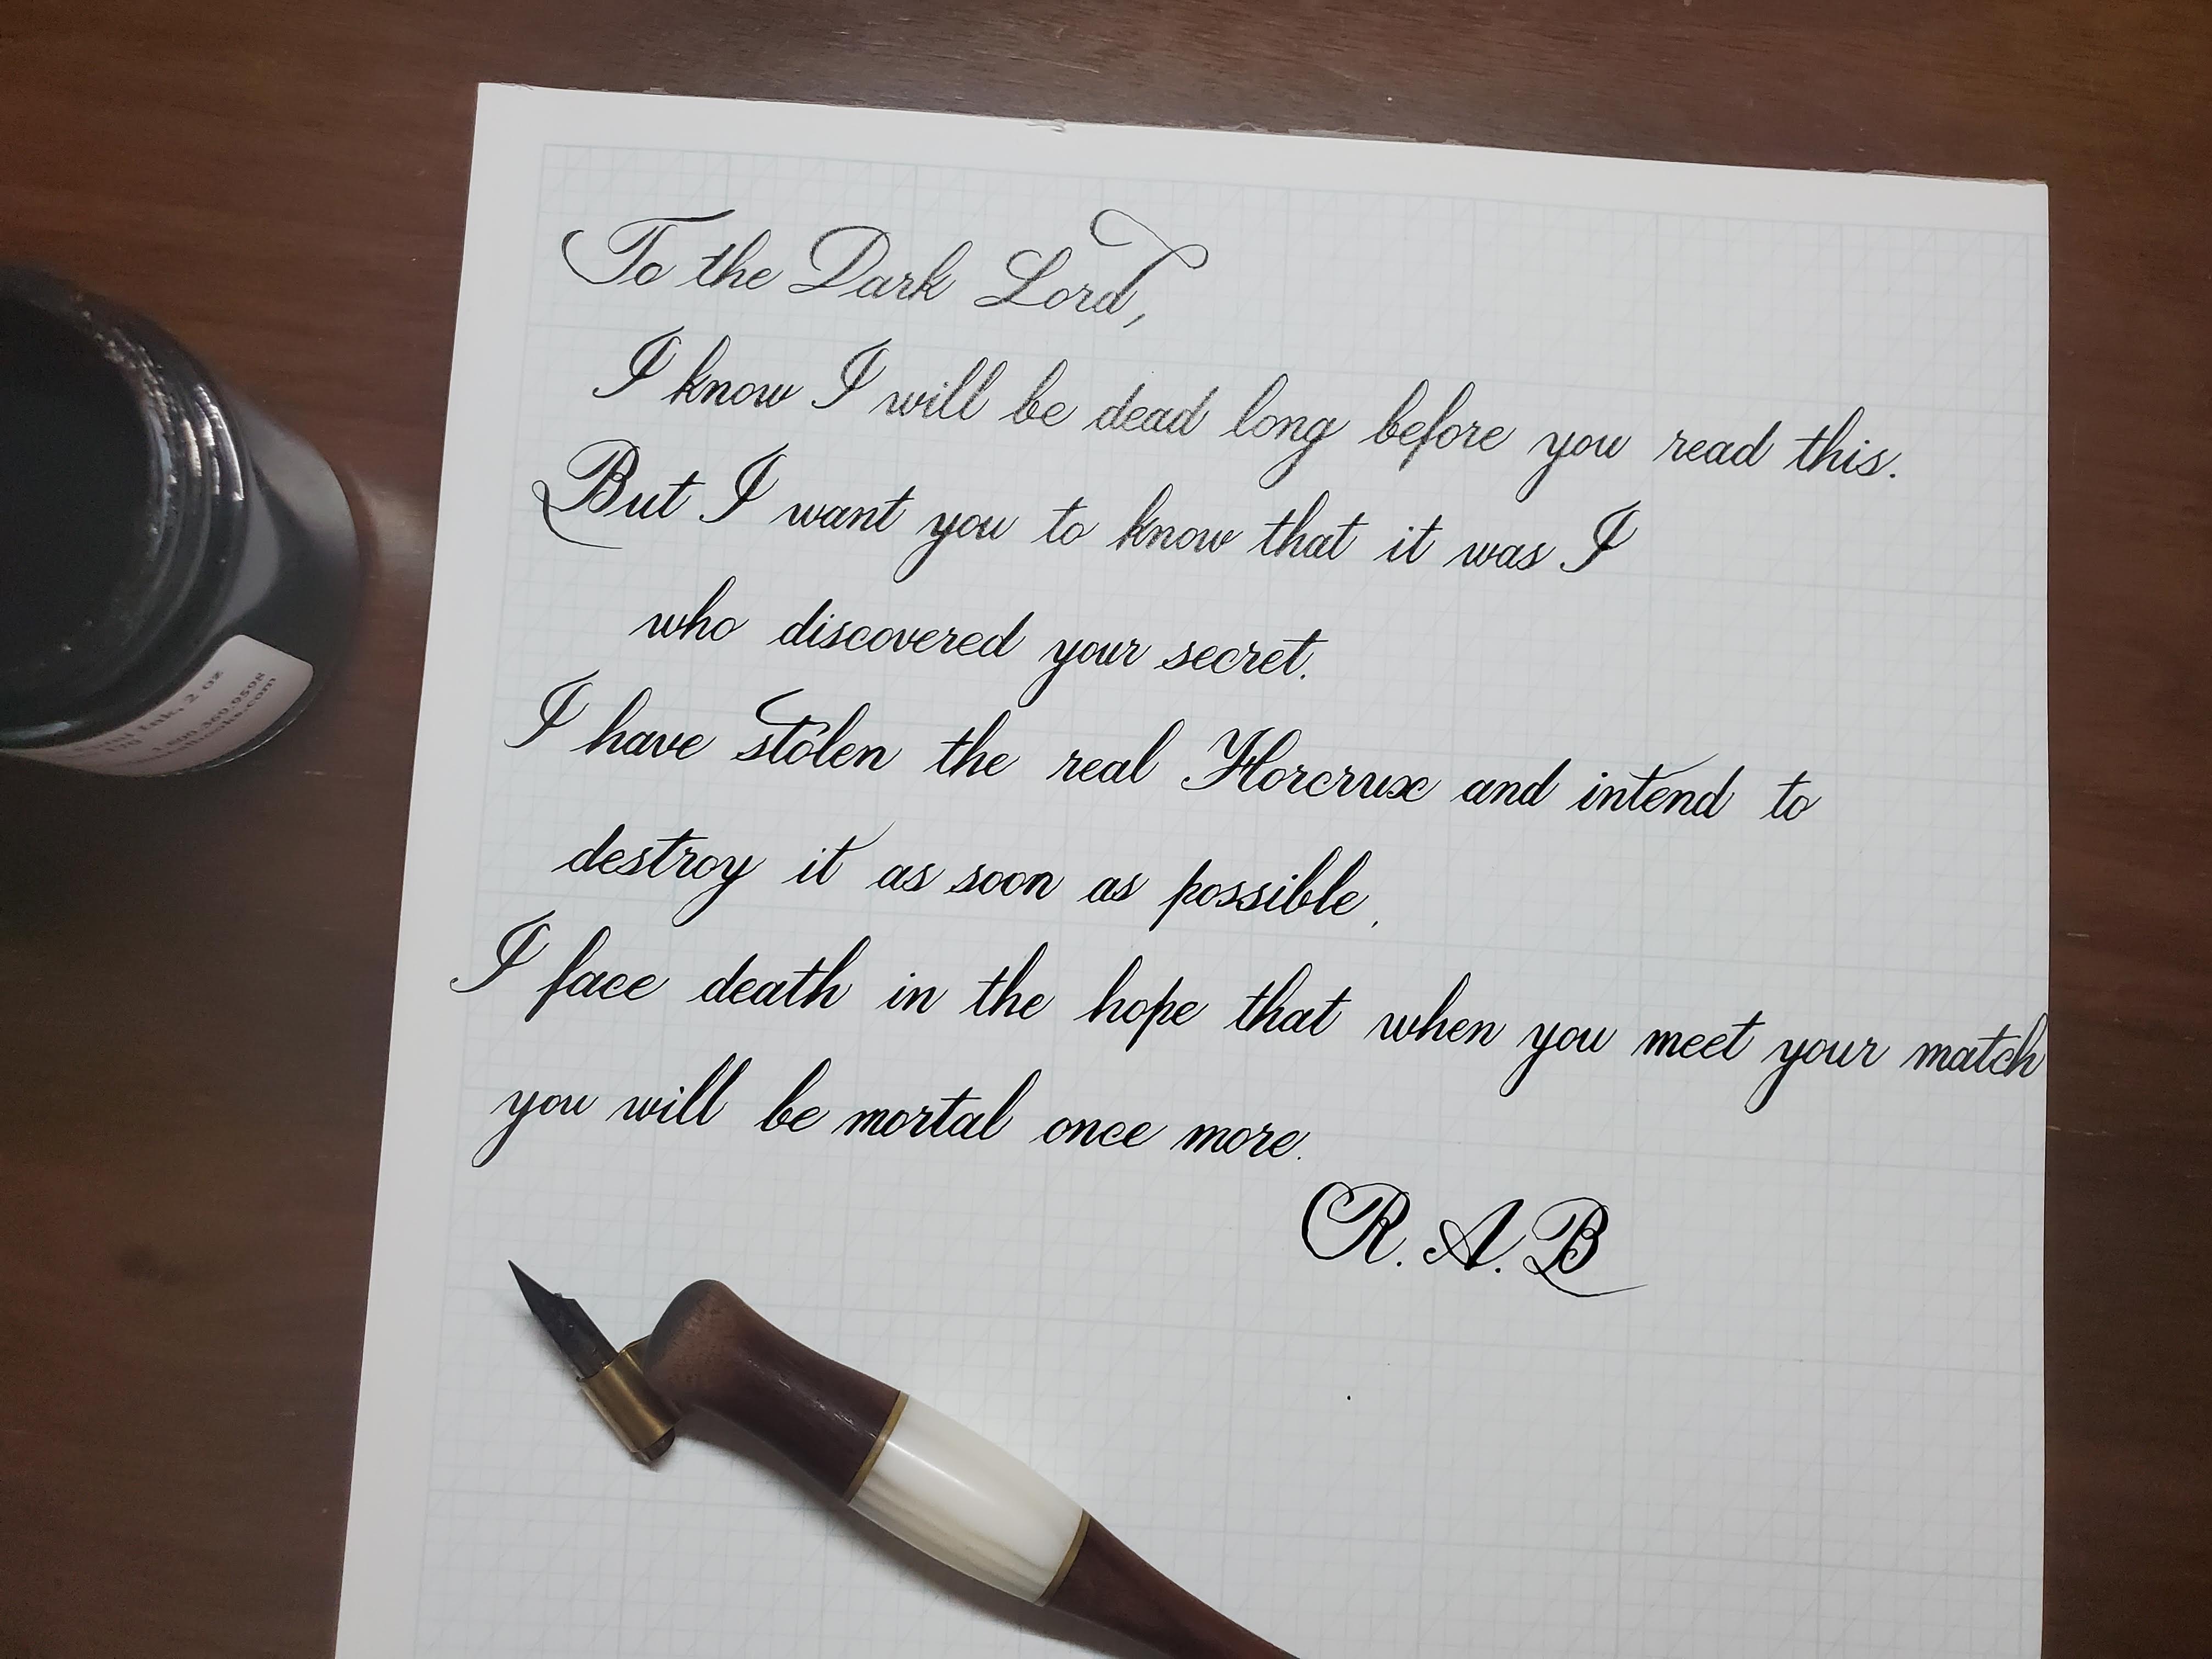 To the Dark Lord,
I know I will be dead long before you read this.
But I want you to know that it was I
who discovered your secret.
I have stolen the real Horcrux and intend to
destroy it as soon as possible.
I face death in the hope that when you meet your match
you will be mortal once more.
R. A. B
Ink, 2 oz